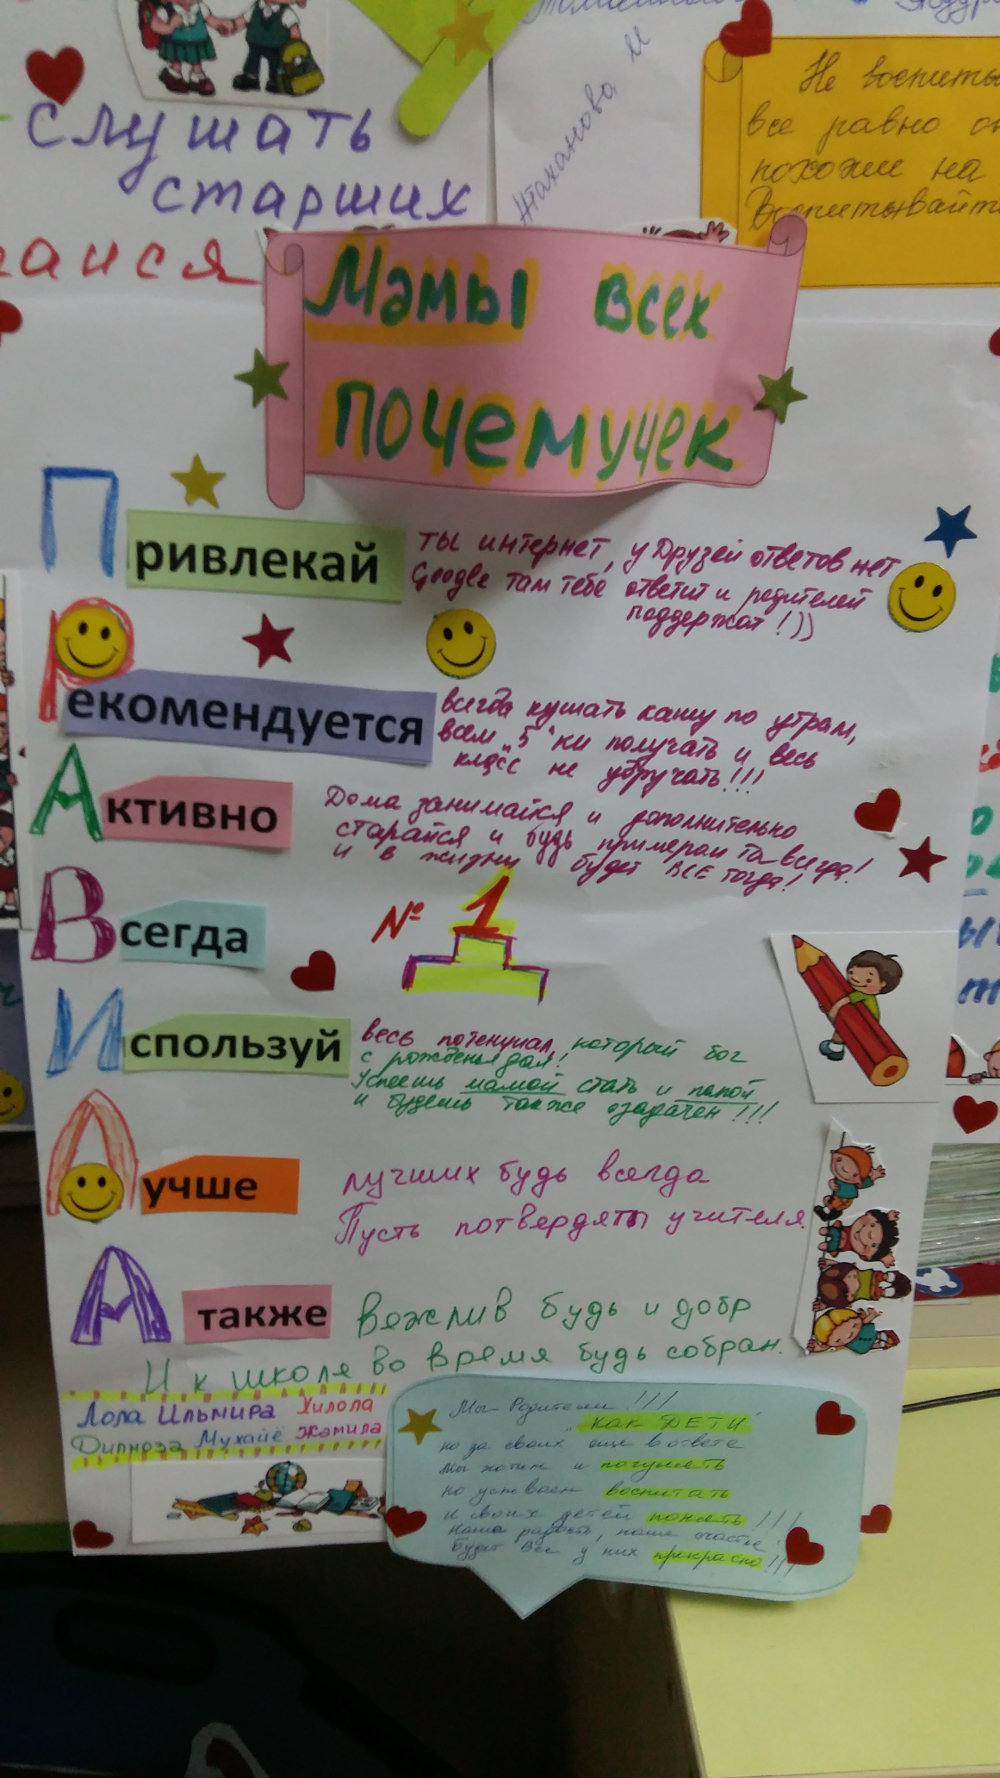 слушать
старших
Не воспиты
все равно о
похожи на
Воспитывайт
Мамы всех
почемучек
Привлекай ты интернет, у друзей ответов нет
Google там тебе ответит и родителей
поддержат!))
Рекомендуется всегда кушать кашу по утрам,
всем "5"ки получать и весь
класс не удручать!!!
Активно Дома занимайся и дополнительно
старайся и будь примером ты всегда!
и в жизни будет ВСЕ тогда!
Всегда № 1
Используй весь потенциал, который бог
с рожденья дал!
Успеешь мамой стать и папой
и будешь также озадачен!!!
Лучше лучших будь всегда
Пусть потвердяты учителя.
А также Вежлив будь и добр
И к школе во время будь собран.
Лола Ильмира Хилола
Дилноза Мухайё Жамила
Мы Родители!!!
"КАК ДЕТИ"
но за своих еще в ответе
Мы хотим и погулять
но успеваем воспитать
и своих детей понять!!!
Наша радость, наше счастье!
Будет Все у них прекрасно!!!